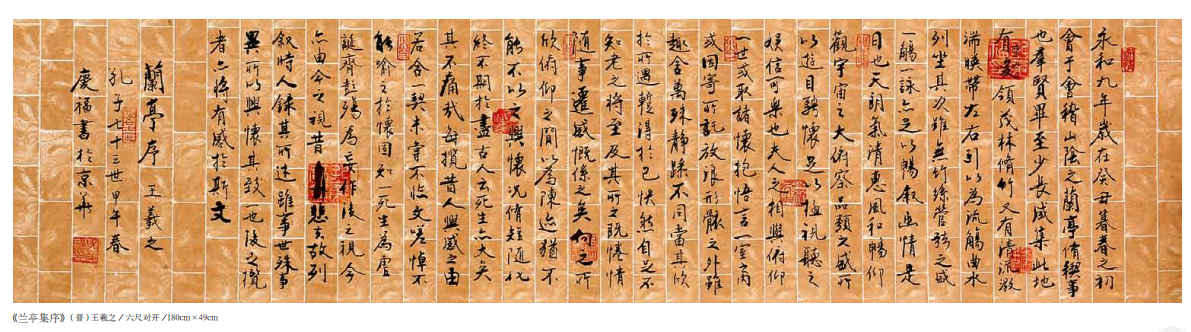 永和九年歲在癸丑暮春之初
會于會稽山陰之蘭亭脩稧事
也羣賢畢至少長咸集此地
有領茂林脩竹又有清流激
湍暎帶左右引以為流觴曲水
列坐其次雖無竹絲管弦之盛
一觴一詠亦足以暢叙幽情是
日也天朗氣清惠風和暢仰
觀宇宙之大俯察品類之盛所
以遊目騁懷足以極視聽之
娛信可樂也夫人之相與俯仰
一世或取諸懷抱悟言一室內
或因寄所託放浪形骸之外雖
趣舍萬殊靜躁不同當其欣
於所遇蹔得於己快然自足不
知老之將至及其所之既惓情
隨事遷感慨係之矣向之所
欣俯仰之間以為陳迹猶不
能不以之興懷況脩短隨化
終不期於盡古人云死生亦大矣
其不痛哉每攬昔人興感之由
若合一契未嘗不臨文嗟悼不
能喻之於懷固知一死生為虛
誕齊彭殤為妄作後之視今
亦由今之視昔悲夫故列
叙時人錄其所述雖事世殊事
異所以興懷其致一也後之攬
者亦將有感於斯文
蘭亭序 王羲之
孔子七十三世甲午春
慶福書於京華
《兰亭集序》(晋)王羲之/六尺对开/180cm×49cm